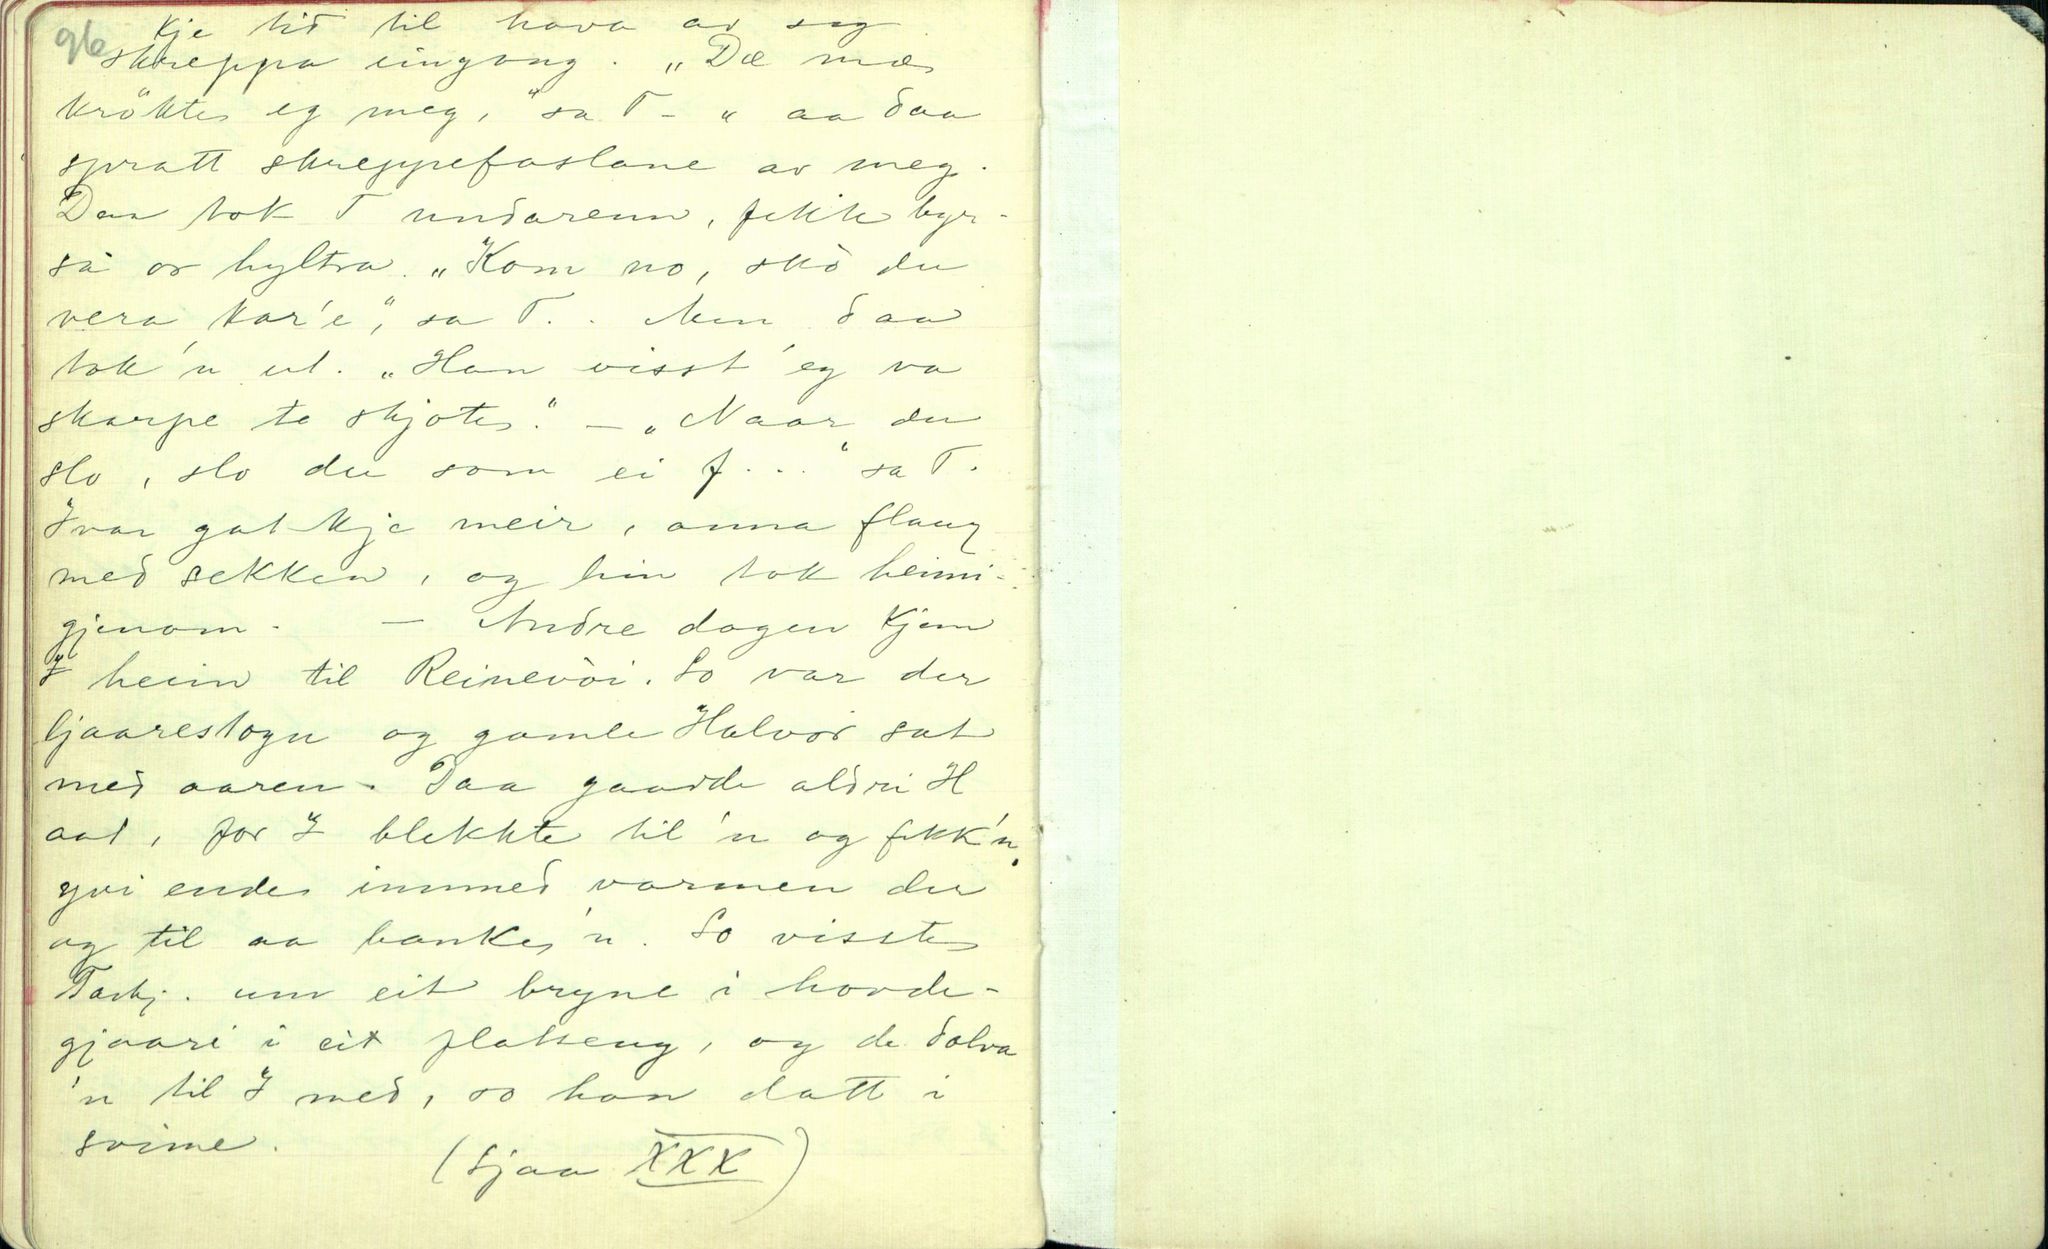 96
kje tid til hava av seg
skreppa eingong. „Dæ mæ
krökte eg meg," sa T - „ aa daa
spratt skreppefaslane av meg.
Daa tok T undarenn, fekk byr-
sa or hyltra. „Kom no, skò du
vera kar'e," sa T.. Men daa
tok'n ut. „Han visst' eg va
skarpe te skjote." — „Naar du
slo, slo du som ei f..." sa T.
Ivar gat kje meir, anna flaug
med sekken, og hin tok heimi-
gjenom. — Andre dagen kjem
I heim til Reinevòi. So var der
ljaareslogn og gamle Halvor sat
med aaren. Daa gaadde aldri H
aat, for I blekkte til'n og fekk'n
yvi ende innmed varmen der
og til aa banke'n. So visste
Tarkj. um eit bryne i hovde-
gjaari i eit plattseng, og de dolva
'n til I med, so han datt i
svime.
(Sjaa XXX)